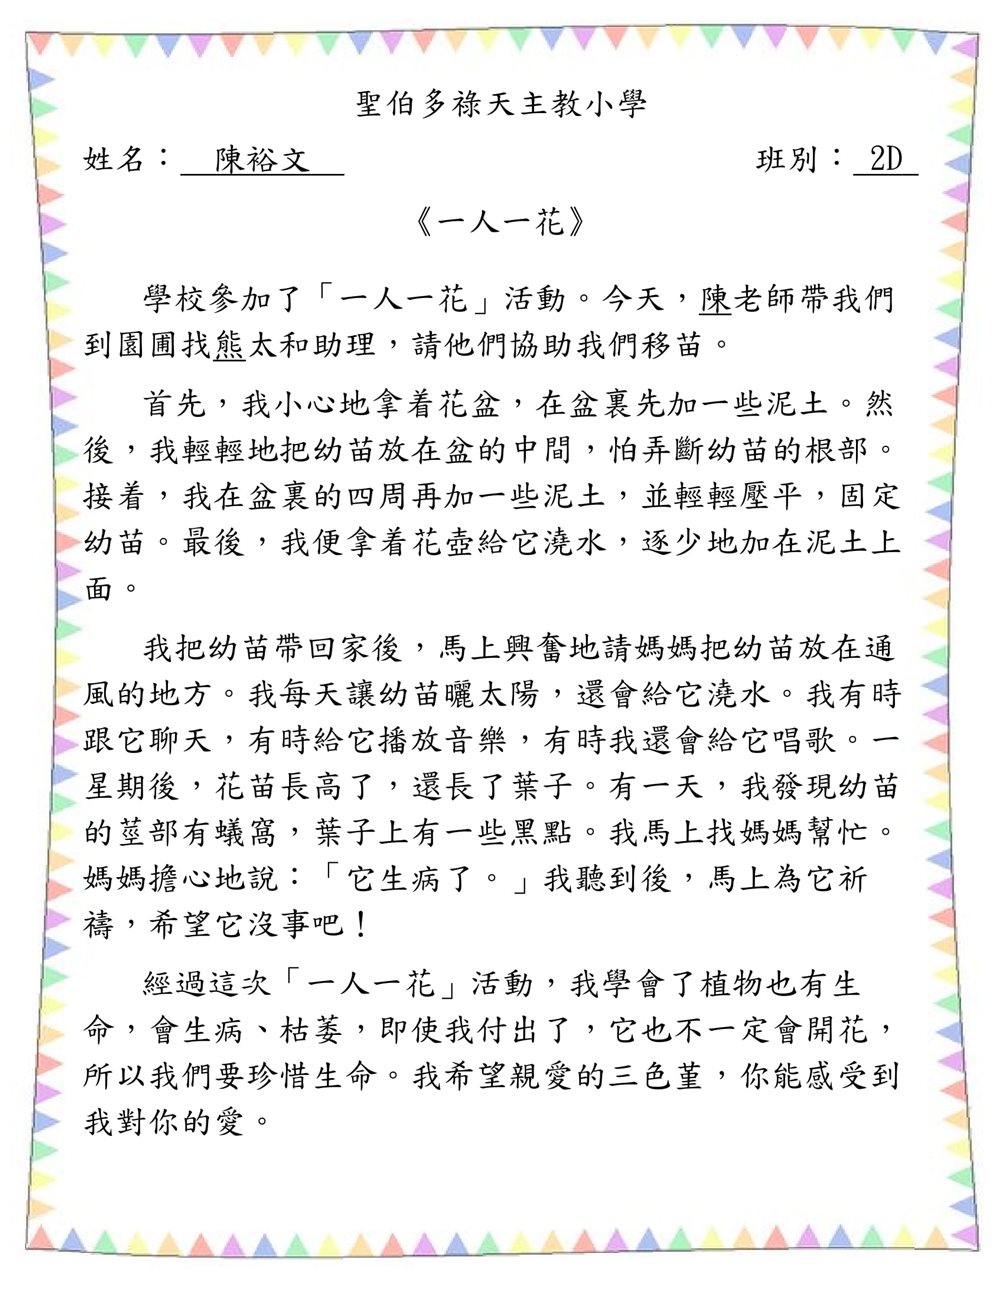 聖伯多祿天主教小學
姓名： 陳裕文 班別： 2D
《一人一花》
學校參加了「一人一花」活動。今天，陳老師帶我們
到園圃找熊太和助理，請他們協助我們移苗。
首先，我小心地拿着花盆，在盆裏先加一些泥土。然
後，我輕輕地把幼苗放在盆的中間，怕弄斷幼苗的根部。
接着，我在盆裏的四周再加一些泥土，並輕輕壓平，固定
幼苗。最後，我便拿着花壺給它澆水，逐少地加在泥土上
面。
我把幼苗帶回家後，馬上興奮地請媽媽把幼苗放在通
風的地方。我每天讓幼苗曬太陽，還會給它澆水。我有時
跟它聊天，有時給它播放音樂，有時我還會給它唱歌。一
星期後，花苗長高了，還長了葉子。有一天，我發現幼苗
的莖部有蟻窩，葉子上有一些黑點。我馬上找媽媽幫忙。
媽媽擔心地說：「它生病了。」我聽到後，馬上為它祈
禱，希望它沒事吧！
經過這次「一人一花」活動，我學會了植物也有生
命，會生病、枯萎，即使我付出了，它也不一定會開花，
所以我們要珍惜生命。我希望親愛的三色堇，你能感受到
我對你的愛。